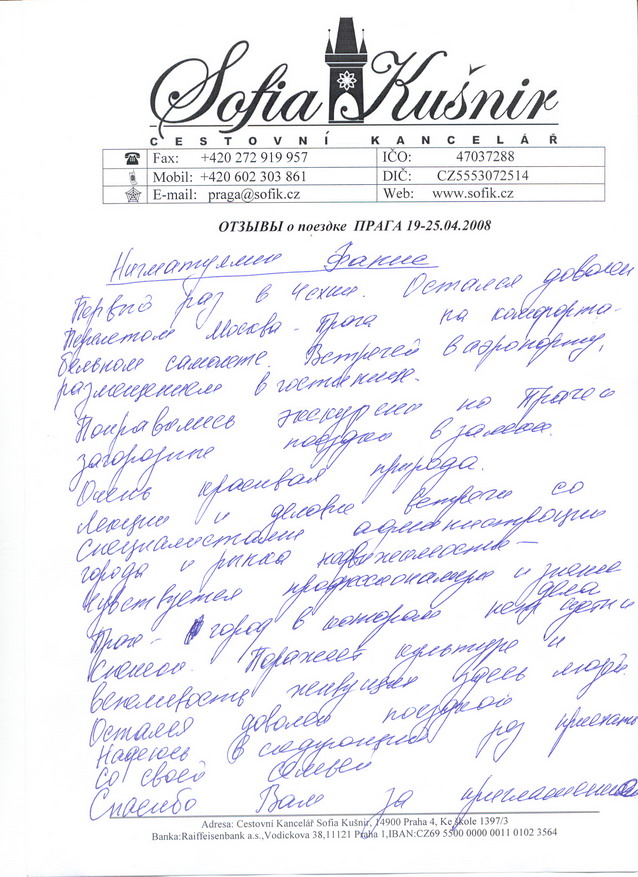 Sofia Kušnir
CESTOVNÍ KANCELÁŘ
Fax: +420 272 919 957 IČO: 47037288
Mobil: +420 602 303 861 DIČ: CZ5553072514
E-mail: praga@sofik.cz Web: www.sofik.cz
ОТЗЫВЫ о поездке ПРАГА 19-25.04.2008
Нигматуллин Фанис
Первый раз в Чехии. Остался доволен
перелетом Москва - Прага на комфорта-
бельном самолете. Встречей в аэропорту,
размещением в гостинице.
Понравились экскурсии по Праге и
загородные поездки в замки.
Очень красивая природа.
Лекции и деловые встречи со
специалистами администрации
города и рынка недвижимости -
чувствуется профессионализм и знание
дела
Прага - город в котором нет
Поражает культура и
вежливость живущих здесь людей.
Остался доволен поездкой
Надеюсь в следующий раз приехать
со своей семьей
Спасибо Вам за приглашение
Adresa: Cestovní Kancelář Sofia Kušnir, 14900 Praha 4, Ke škole 1397/3
Banka:Raiffeisenbank a.s.,Vodickova 38,11121 Praha 1,IBAN:CZ69 5500 0000 0011 0102 3564